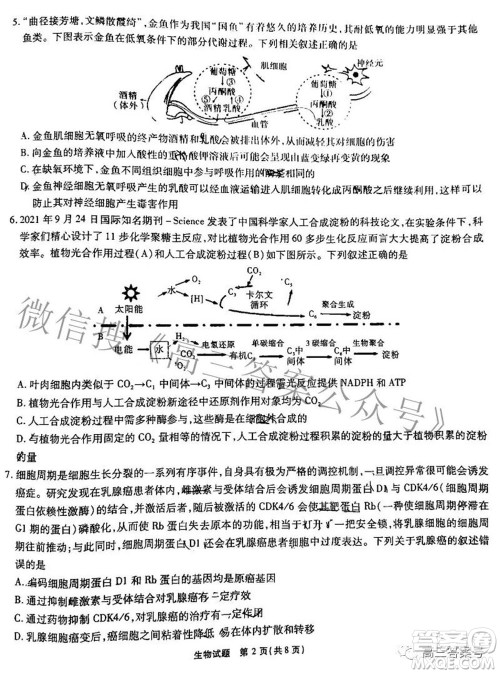 5. “曲径接芳塘，文鳞散霞绮”，金鱼作为我国“国鱼”有着悠久的培养历史，其耐低氧的能力明显强于其他
鱼类。下图表示金鱼在低氧条件下的部分代谢过程。下列相关叙述正确的是
肌细胞
神经元
葡萄糖
葡萄糖
①
③
丙酮酸
丙酮酸
⑤
②
酒精
(体外)
酒精乳酸
乳酸
血管
A. 金鱼肌细胞无氧呼吸的终产物酒精和会被排出体外，从而减轻其对细胞的伤害
B. 向金鱼的培养液中加入酸性的重铬酸钾溶液后可能会呈现由蓝变绿再变黄的现象
C. 在缺氧环境下，金鱼不同组织细胞中呼吸作用的产物存在差异
D. 金鱼神经细胞无氧呼吸产生的乳酸可以经血液运输进入肌细胞转化成丙酮酸之后继续代谢，
防止其对神经细胞产生毒害作用
6. 2021 年 9 月 24 日国际知名期刊-Science 发表了中国科学家人工合成淀粉的科技论文，在实验条件下，科
学家们精心设计了 11 步化学聚糖主反应，对比植物光合作用 60 多步生化反应而言大大提高了淀粉合成
效率。植物光合作用过程(A)和人工合成淀粉过程(B)如下图所示。下列叙述正确的是
太阳能
水
O₂
[H]
CO₂
C₃
卡尔文
循环
聚合生成
淀粉
电能
水
电氢还原
CO₂
有机C₁
单碳缩合
C₃中
间体
3 碳缩合
C₆中
间体
聚合生成
淀粉
A. 叶肉细胞内类似于 CO₂→C₁ 中间体→C₃ 中间体的过程需光反应提供 NADPH 和 ATP
B. 植物光合作用与人工合成淀粉新途径中还原剂作用对象均为 CO₂
C. 人工合成淀粉过程中需多种酶参与，这些酶的最适温度一定相同
D. 与植物光合作用固定的 CO₂ 量相等的情况下人工合成积累淀粉的量大于植物积累淀粉
的量
7. 细胞周期是细胞生长分裂的一系列有序事件，自身具有极为严格的调控机制，一旦调控异常很可能会诱发
癌症。研究发现在乳腺癌患者体内，雌激素与受体结合后会诱发细胞周期蛋白 D1 与 CDK4/6(细胞周期
蛋白依赖性激酶)的结合，并激活后者，使其激酶活性增强，活化的 CDK4/6 能使其靶蛋白(能使细胞停滞在
G1 期的蛋白)磷酸化，从而使其失去原有的功能，相当于打开了细胞周期进程的刹车，继而促进细胞周
期往前推动；与此同时，细胞周期蛋白 D1 在乳腺癌患者细胞中过度表达。下列关于乳腺癌的叙述错
误的是
A. 编码细胞周期蛋白 D1 和 Rb 蛋白的基因均是原癌
B. 通过抑制雌激素与受体结合对乳腺癌有一定疗效
C. 通过药物抑制 CDK4/6，对乳腺癌的治疗有一定疗效
生物试题 第 2 页(共 8 页)
微信搜《高三答案公众号》
高三答案号